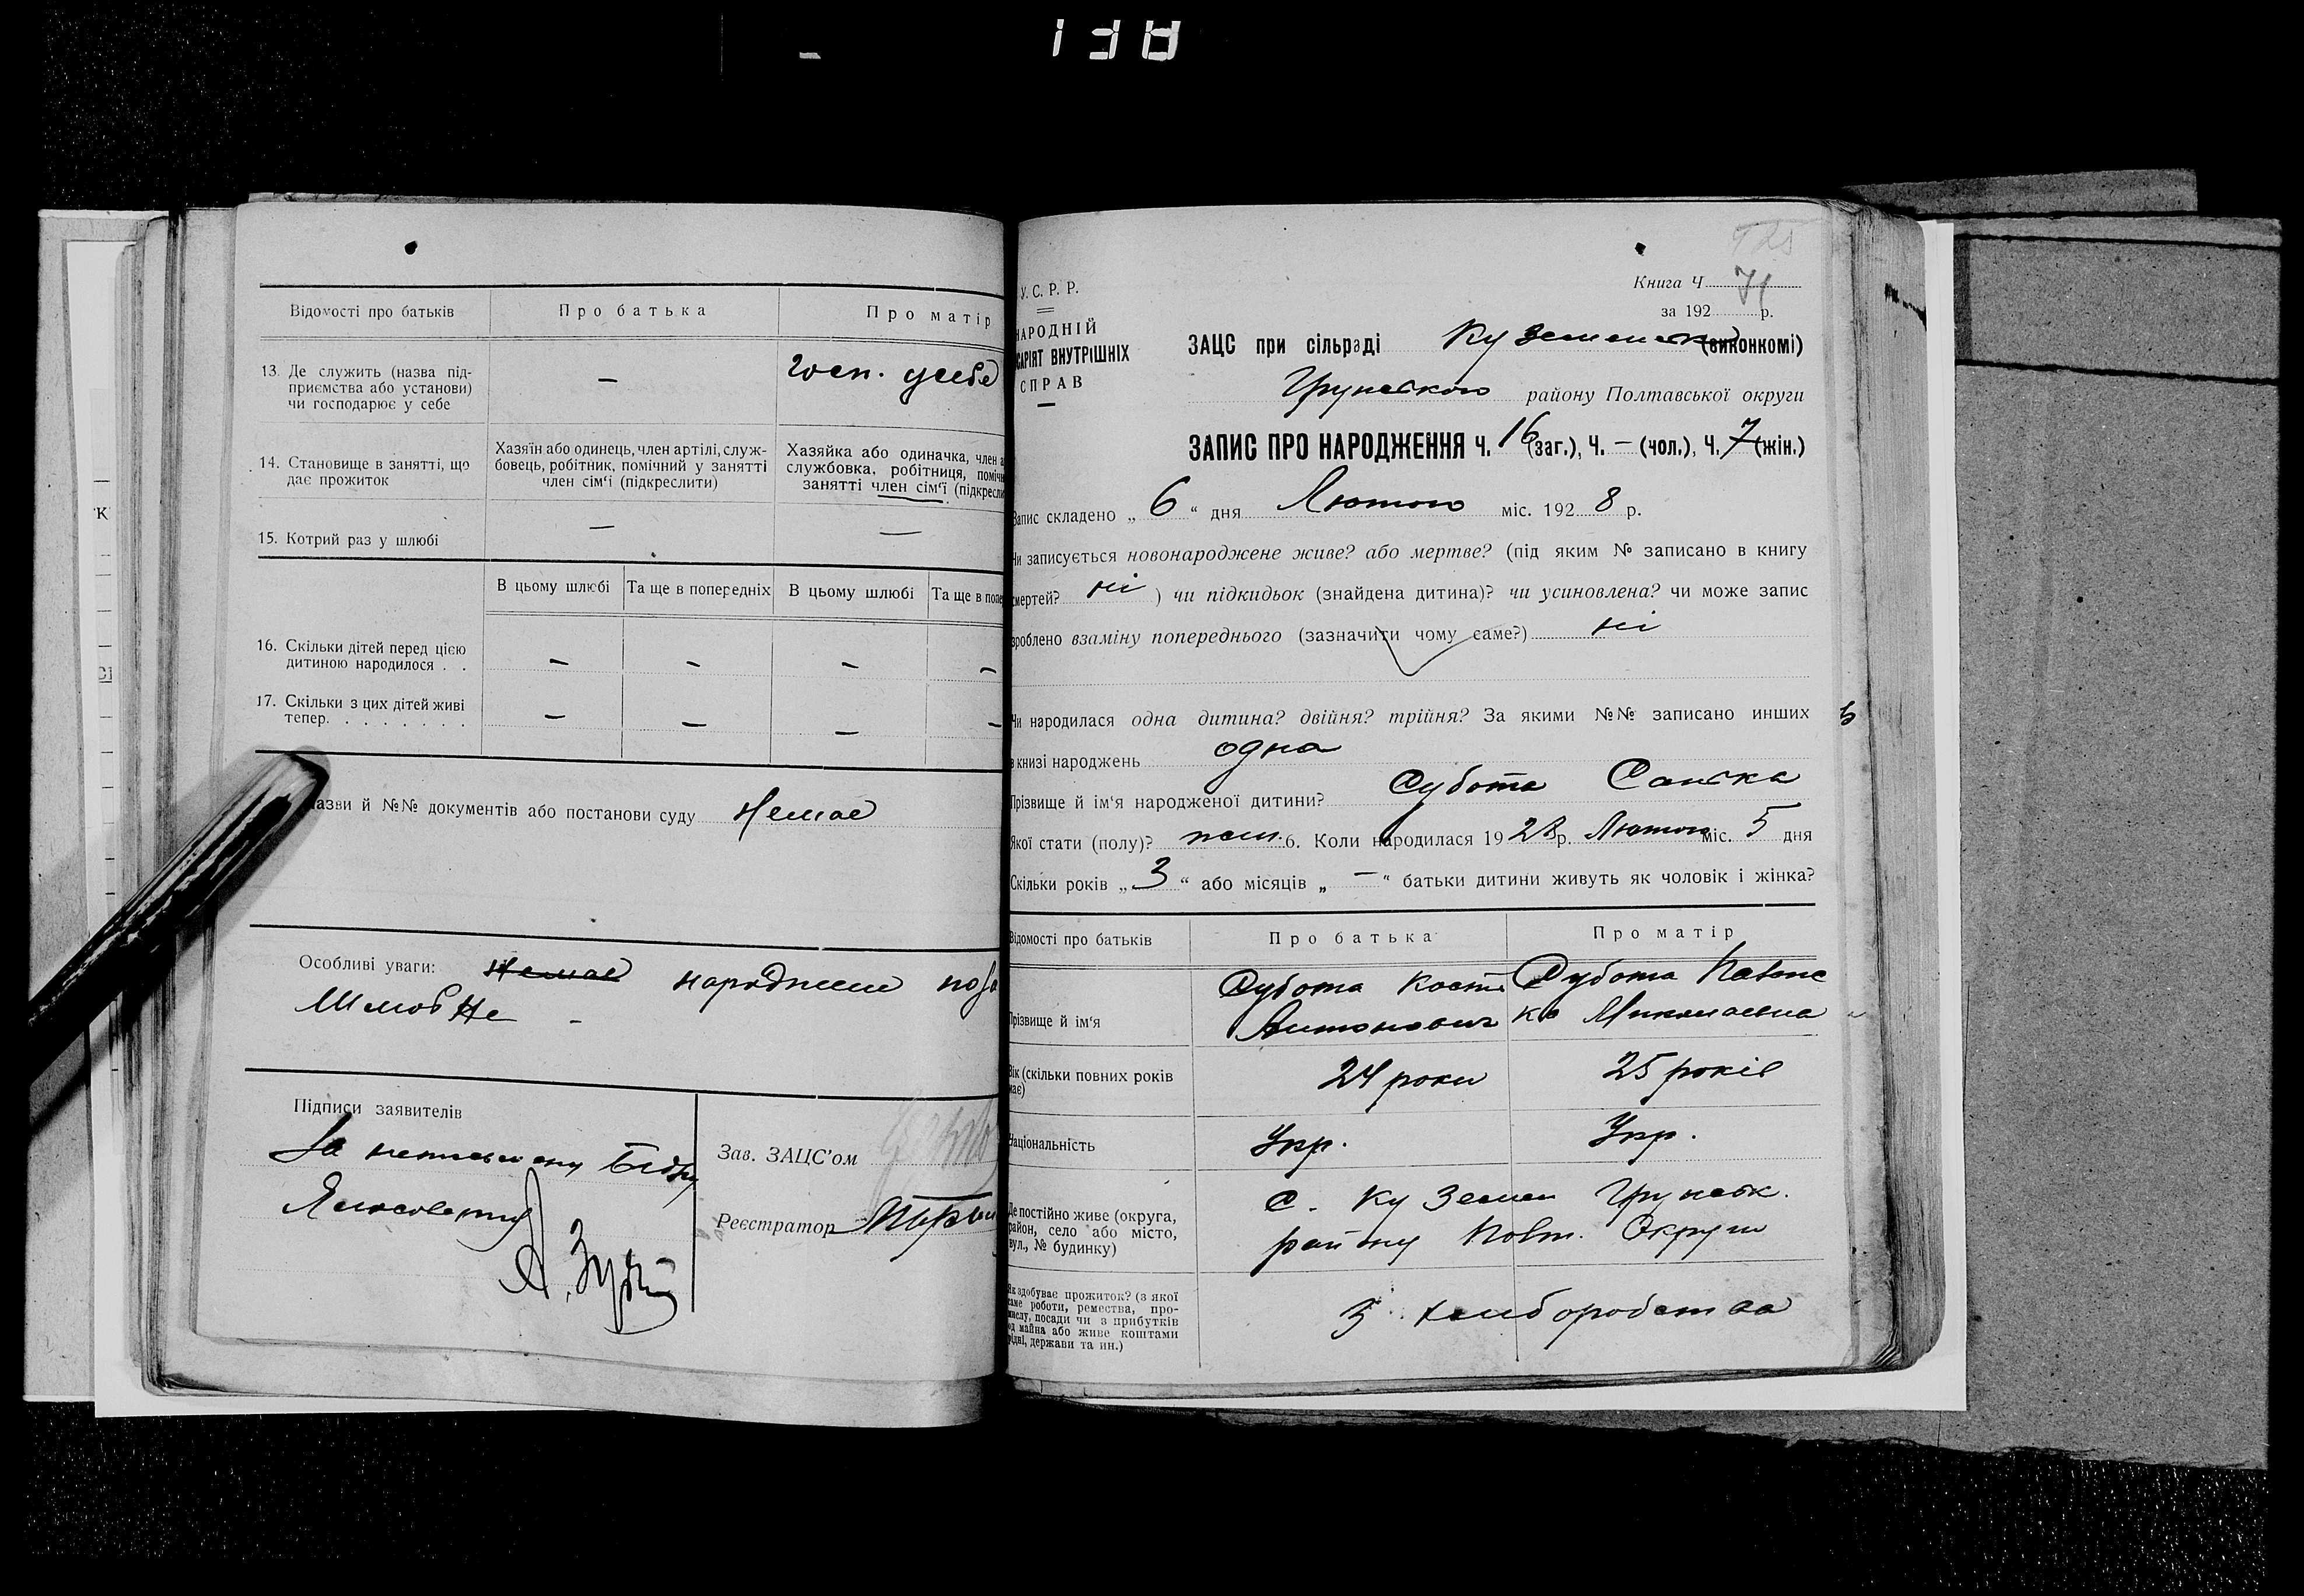 138
Відомості про батьків
Про батька
Про матір
13. Де служить (назва під-
приємства або установи)
чи господарює у себе
—
госп. усебе
14. Становище в занятті, що
дає прожиток
Хазяїн або одинець, член артілі, служ-
бовець, робітник, помічний у занятті
член сім'ї (підкреслити)
Хазяйка або одиначка, член а
службовка, робітниця, помічн
занятті член сім'ї (підкресли
15. Котрий раз у шлюбі
— —
В цьому шлюбі
Та ще в попередніх
В цьому шлюбі
Та ще в попе
16. Скільки дітей перед цією
дитиною народилося . .
— — — —
17. Скільки з цих дітей живі
тепер. . . . . . . .
— — — —
Назви й №№ документів або постанови суду Немає
Особливі уваги: Немає народжене поза
Шлюбне —
Підписи заявителів
За неписьмену
А. Зуб
Зав. ЗАЦС'ом
Реєстратор
У. С. Р. Р.
НАРОДНІЙ
САРІЯТ ВНУТРІШНІХ
СПРАВ
Книга Ч 71
за 192 р.
ЗАЦС при сільраді Куземенск (виконкомі)
Грунського району Полтавської округи
ЗАПИС ПРО НАРОДЖЕННЯ Ч. 16 (заг.), Ч. — (чол.), Ч. 7 (жін.)
Запис складено „ 6 “ дня Лютого міс. 192 8 р.
Чи записується новонароджене живе? або мертве? (під яким № записано в книгу
смертей? ні ) чи підкидьок (знайдена дитина)? чи усиновлена? чи може запис
зроблено взаміну попереднього (зазначити чому саме?) ні
Чи народилася одна дитина? двійня? трійня? За якими №№ записано инших
в книзі народжень одна
Прізвище й ім'я народженої дитини? Субота Санька
Якої стати (полу)? жін. 6. Коли народилася 19 28 р. Лютого міс. 5 дня
Скільки років „ 3 “ або місяців „ — “ батьки дитини живуть як чоловік і жінка?
Відомості про батьків
Про батька
Про матір
Прізвище й ім'я
Субота Кость
Антонович
Субота Навлс
ка Миколаєвна
Вік (скільки повних років
має)
24 роки
25 років
Національність
Укр.
Укр.
Де постійно живе (округа,
район, село або місто,
вул., № будинку)
С. Куземен Грунськ.
району Полт. Округи
Як здобуває прожиток? (з якої
саме роботи, ремества, про-
мислу, посади чи з прибутків
од майна або живе коштами
рідні, держави та ин.)
З хліборобства